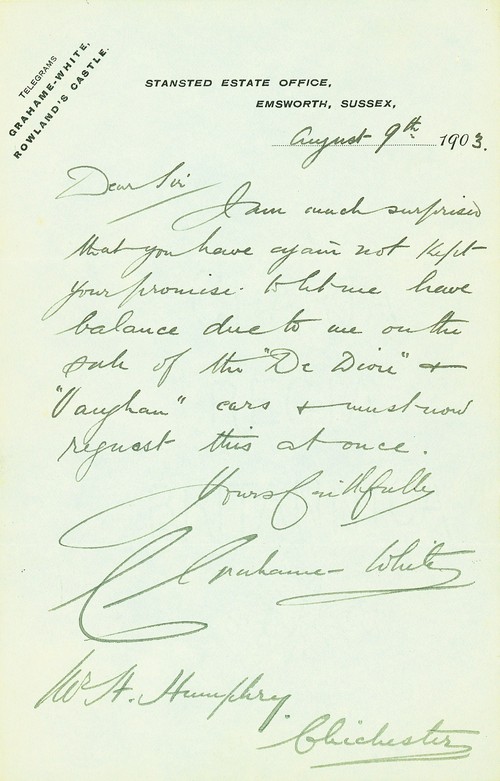 TELEGRAMS
GRAHAME-WHITE,
ROWLAND'S CASTLE.
STANSTED ESTATE OFFICE,
EMSWORTH, SUSSEX,
August 9th 1903.
Dear Sir
I am much surprised
that you have again not kept
your promise to let me have
balance due to me on the
sale of the "De Dion" &
"Vaughan" cars & must now
request this at once.
Yours faithfully
C Grahame-White
Mr H. Humphry.
Chichester